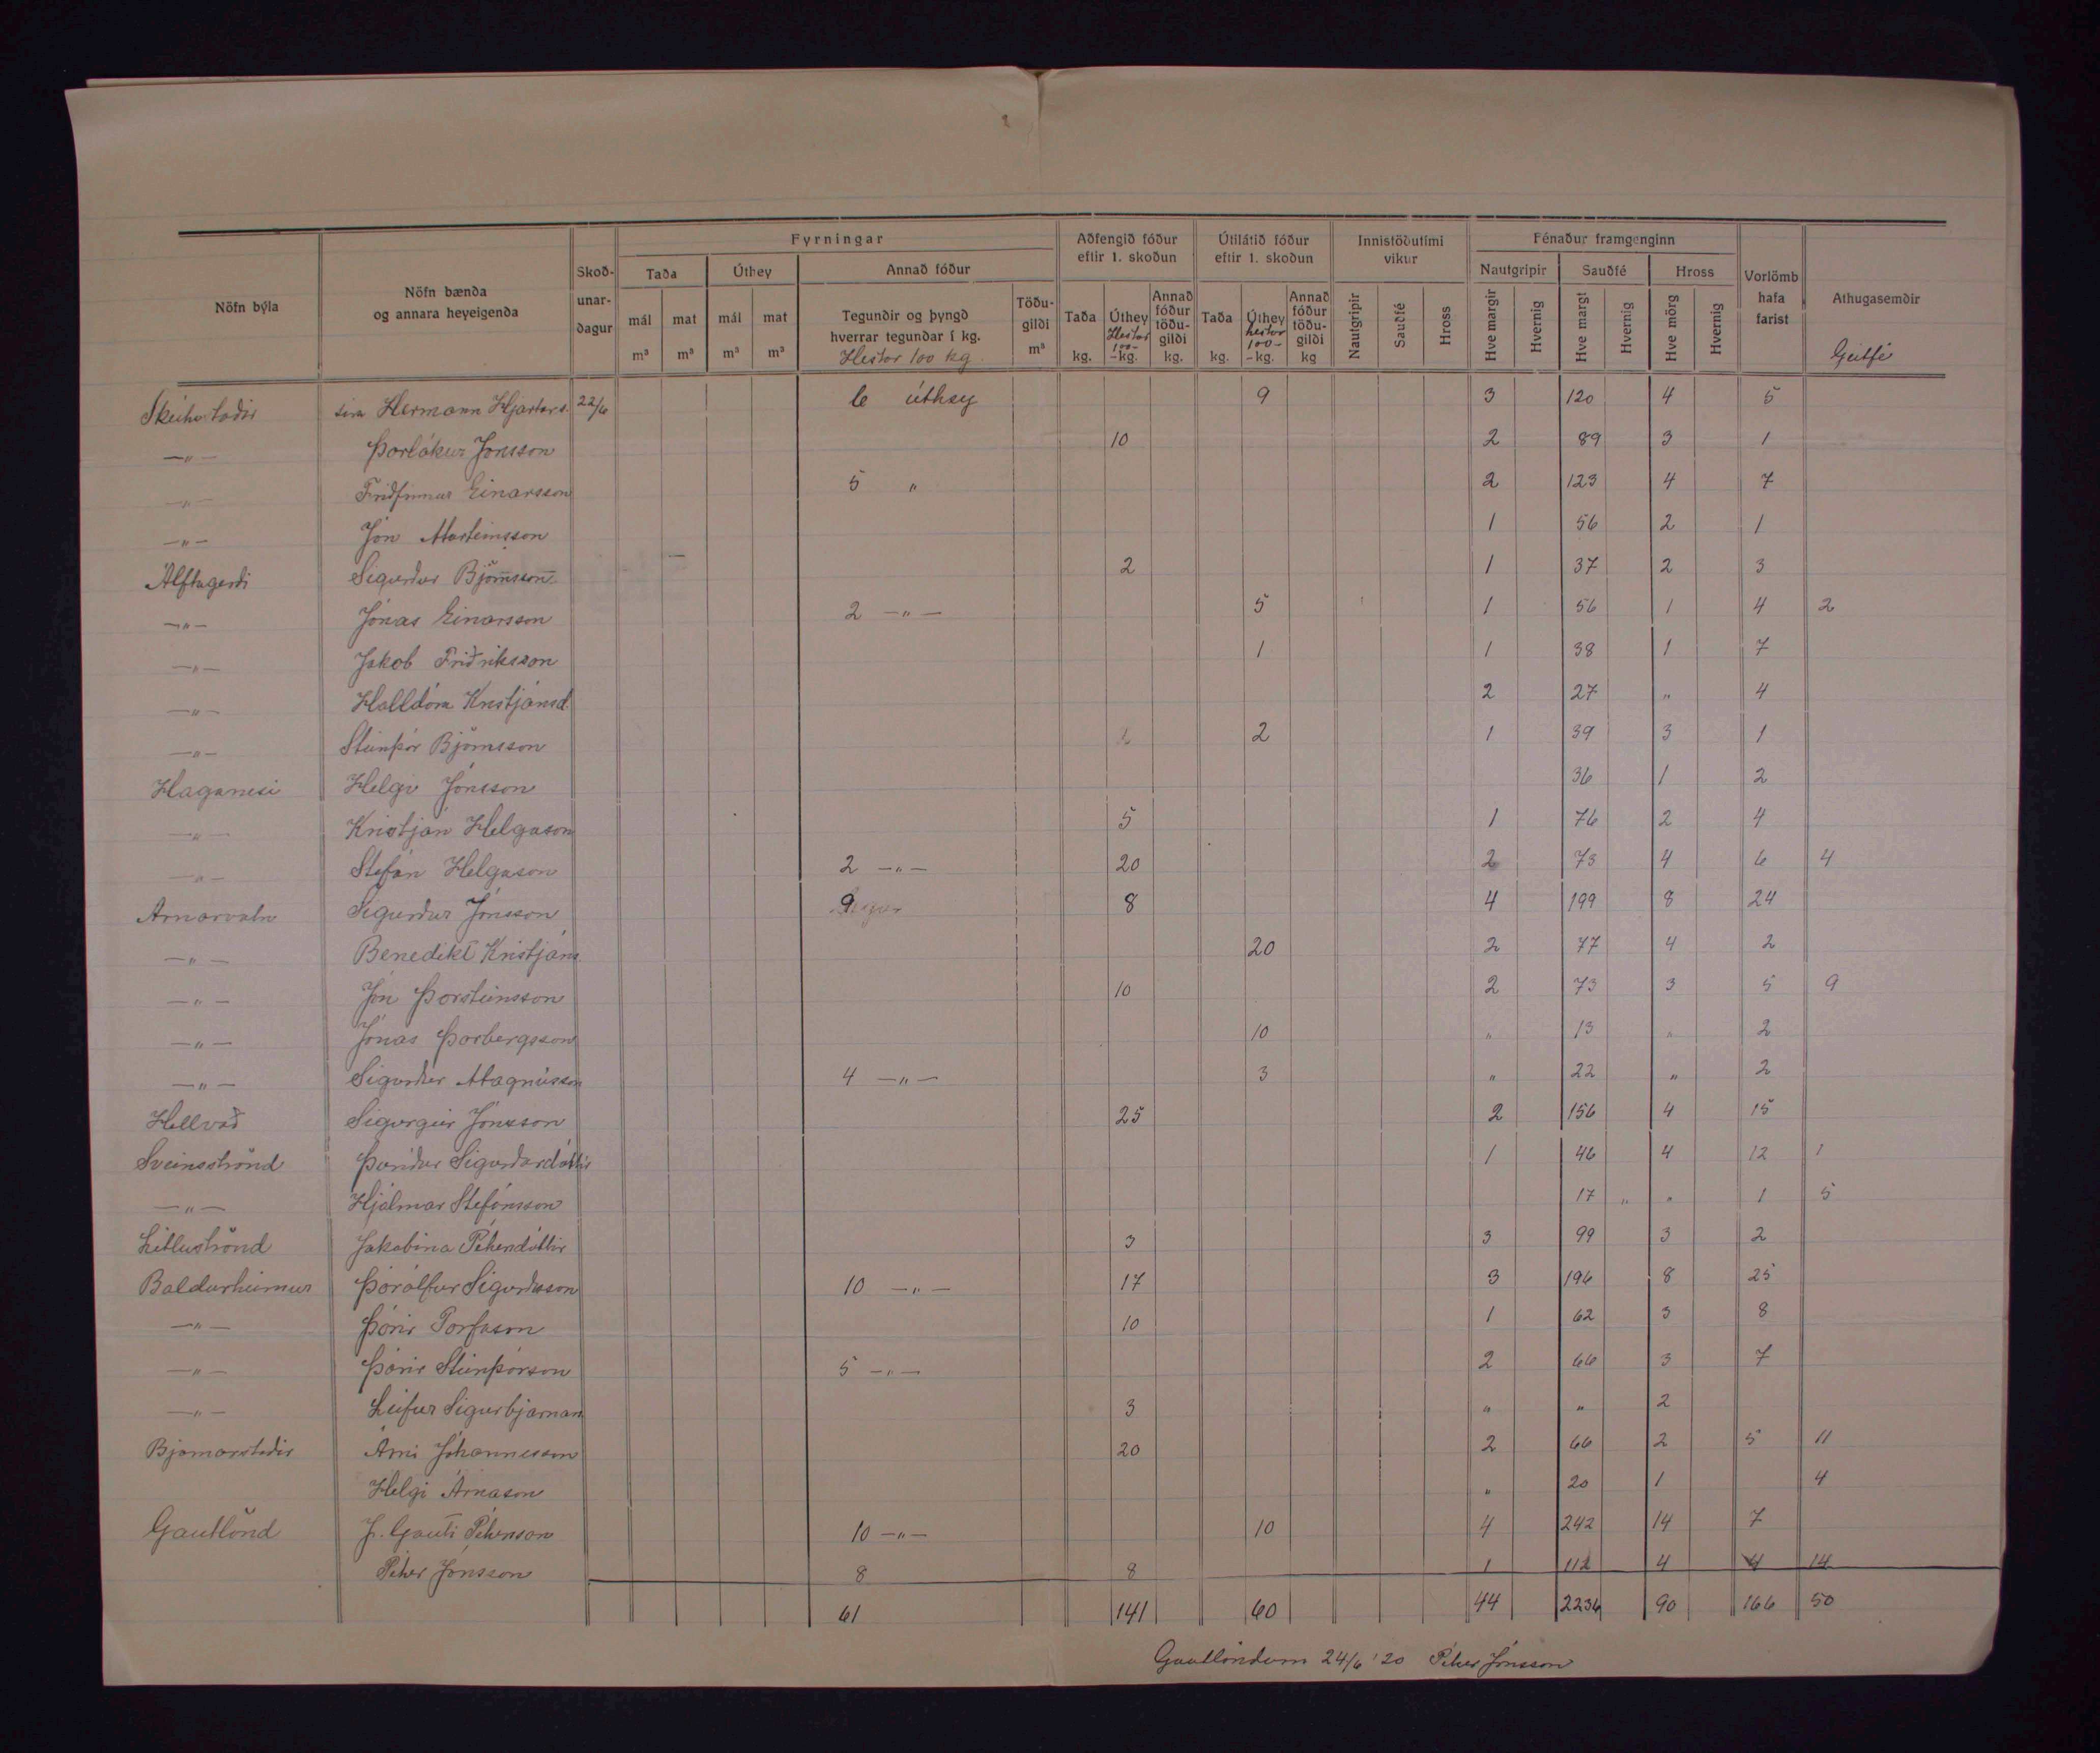 Nöfn býla | Nöfn bænda og annara heyeigenda | Skoðunardagur | Fyrningar | Aðfengið fóður eftir 1. skoðun | Útilátið fóður eftir 1. skoðun | Innistöðutími vikur | Fénaður framgenginn | Vorlömb hafa farist | Athugasemdir
Taða | Úthey | Annað fóður | Nautgripir | Sauðfé | Hross
mál m³ | mat m³ | mál m³ | mat m³ | Tegundir og þyngd hverrar tegundar í kg. Hestar 100 kg. | Töðugildi m³ | Taða kg. | Úthey Hestar 100- -kg. | Annað fóður töðugildi kg. | Taða kg. | Úthey hestar 100- -kg. | Annað fóður töðugildi kg | Nautgripir | Sauðfé | Hross | Hve margir | Hvernig | Hve margt | Hvernig | Hve mörg | Hvernig | Geitfé
Skútustaðir síra Hermann Hjartars. 22/6 6 úthey 9 3 120 4 5
—"— Þorlákur Jónsson 10 2 89 3 1
—"— Friðfinnur Einarsson 5 " 2 123 4 7
—"— Jón Marteinsson 1 56 2 1
Álftagerði Sigurður Björnsson 2 1 37 2 3
—"— Jónas Einarsson 2 —"— 5 1 56 1 4 2
—"— Jakob Friðriksson 1 1 38 1 7
—"— Halldóra Kristjánsd. 2 27 " 4
—"— Steinþór Björnsson 2 1 39 3 1
Haganesi Helgi Jónsson 36 1 2
—"— Kristján Helgason 5 1 76 2 4
—"— Stefán Helgason 2 —"— 20 2 73 4 6 4
Arnarvatn Sigurður Jónsson 9 8 4 199 8 24
—"— Benedikt Kristjáns. 20 2 77 4 2
—"— Jón Þorsteinsson 10 2 73 3 5 9
—"— Jónas Þorbergsson 10 " 13 " 2
—"— Sigurður Magnússon 4 —"— 3 " 22 " 2
Hellvað Sigurgeir Jónsson 25 2 156 4 15
Sveinsströnd Þuríður Sigurðardóttir 1 46 4 12 1
—"— Hjálmar Stefánsson 17 " " 1 5
Litluströnd Jakobína Pétursdóttir 3 3 99 3 2
Baldursheimur Þórólfur Sigurðsson 10 —"— 17 3 196 8 25
—"— Þórir Torfason 10 1 62 3 8
—"— Þórir Steinþórsson 5 —"— 2 66 3 7
—"— Leifur Sigurbjarnars 3 " " 2
Bjarnarstaðir Árni Jóhannesson 20 2 66 2 5 11
Helgi Árnason " 20 1 4
Gautlönd J. Gauti Pétursson 10 —"— 10 4 242 14 7
Pétur Jónsson 8 8 1 112 4 4 14
61 141 60 44 2236 90 166 50
Gautlöndum 24/6 '20 Pétur Jónsson